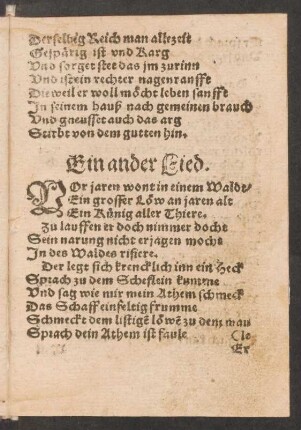 Derselbig Reich man allezeit
Gespärig ist vnd Karg
Vnd sorget stet das jm zurinn
Vnd ist ein rechter nagenranfft
Die weil er woll möcht leben sanfft
In seinem hauß nach gemeinen brauch
Vnd gneusset auch das arg
Stirbt von dem gutten hin.
Ein ander Lied.
VOr jaren wont in einem Walde/
Ein grosser Löw an jaren alt
Ein Künig aller Thiere.
Zu lauffen er doch nimmer docht
Sein narung nicht erjagen mocht
In des Waldes rifiere.
Der legt sich krencklich inn ein Heck
Sprach zu dem Scheflein kumme
Vnd sag wie mir mein Athem schmeck
Das Schaff einfeltig frumme
Schmeckt dem listigẽ löwẽ zu dem maul
Sprach dein Athem ist faule
Er